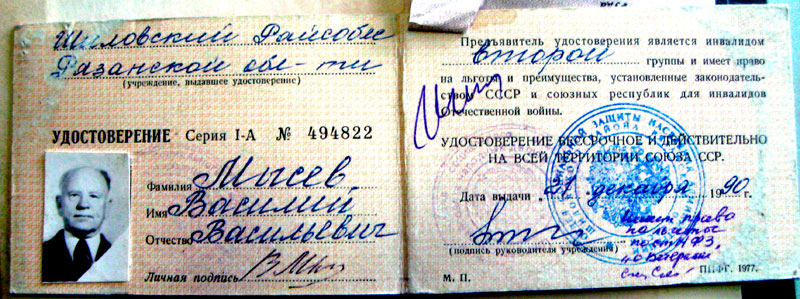 Шиловский Райсобес
Рязанской обл-ти
(учреждение, выдавшее удостоверение)
УДОСТОВЕРЕНИЕ Серия I-А № 494822
Фамилия Мысев
Имя Василий
Отчество Васильевич
Личная подпись
Предъявитель удостоверения является инвалидом
второй группы и имеет право
на льготы и преимущества, установленные законодатель-
ством СССР и союзных республик для инвалидов
Отечественной войны.
УДОСТОВЕРЕНИЕ БЕССРОЧНОЕ И ДЕЙСТВИТЕЛЬНО
НА ВСЕЙ ТЕРРИТОРИИ СОЮЗА ССР.
Дата выдачи „21 декабря 1990 г.
(подпись руководителя учреждения)
М. П.
имеет право
на льготы
по ст. ФЗ
„О ветеранах
ППФГ. 1977.